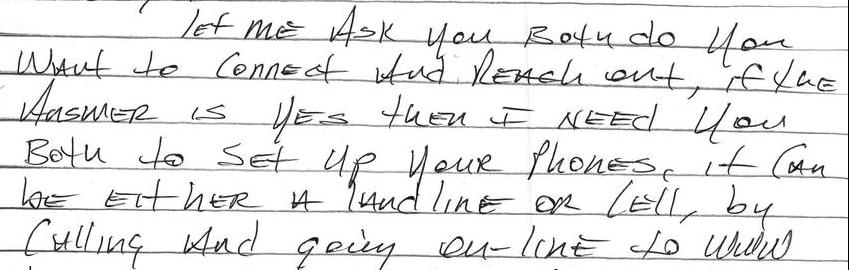 let me Ask you Both do you
Want to Connect And Reach out, if the
Answer is yes then I need you
Both to set up your phones, it can
be either A landline or Cell, by
Calling And going on-line to www